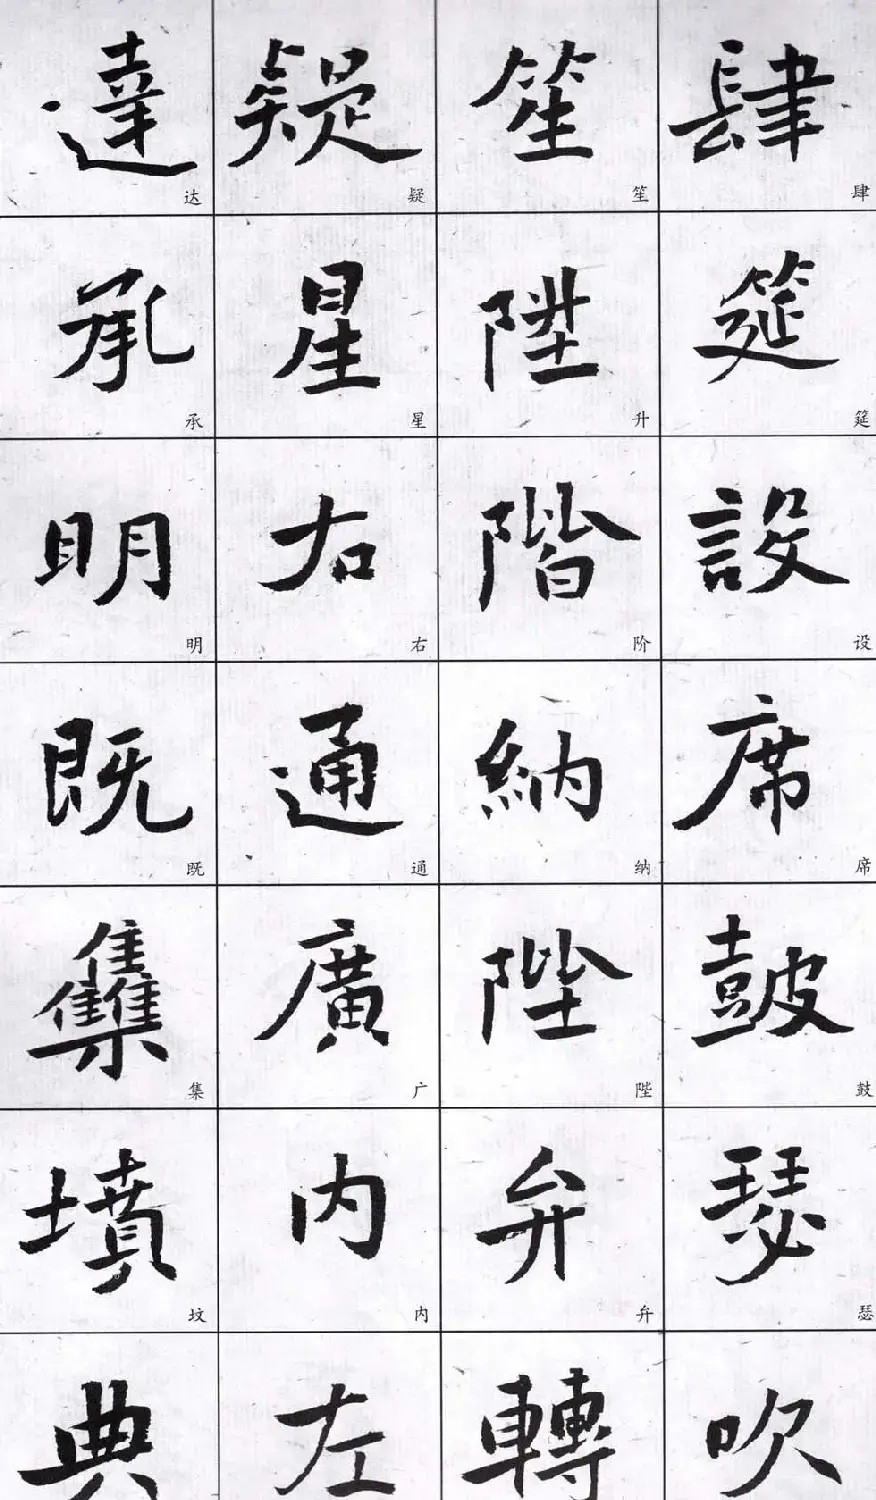 肆筵設席鼓瑟吹
肆筵设席鼓瑟
笙陞階納陛弁轉
笙升阶纳陛弁
疑星右通廣内左
疑星右通广内
達承明既雧墳典
达承明既集坟